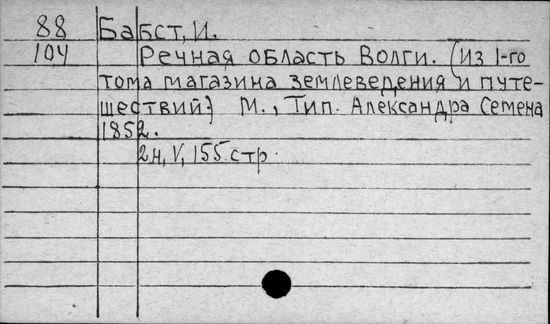 88 Бабст, И.
104 Речная область Волги. (Из 1-го
тома магазина землеведения и путе-
шествий) М., Тип. Александра Семена
1852.
2н, V, 155 стр.